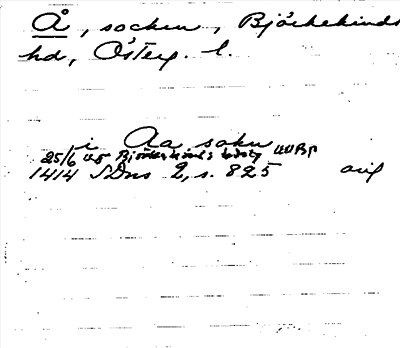 Å, socken, Björkekinds
hd, Österg. l.
i Aa sokn
25/6 Björkekinds
1414 SDns 2, s. 825 avs